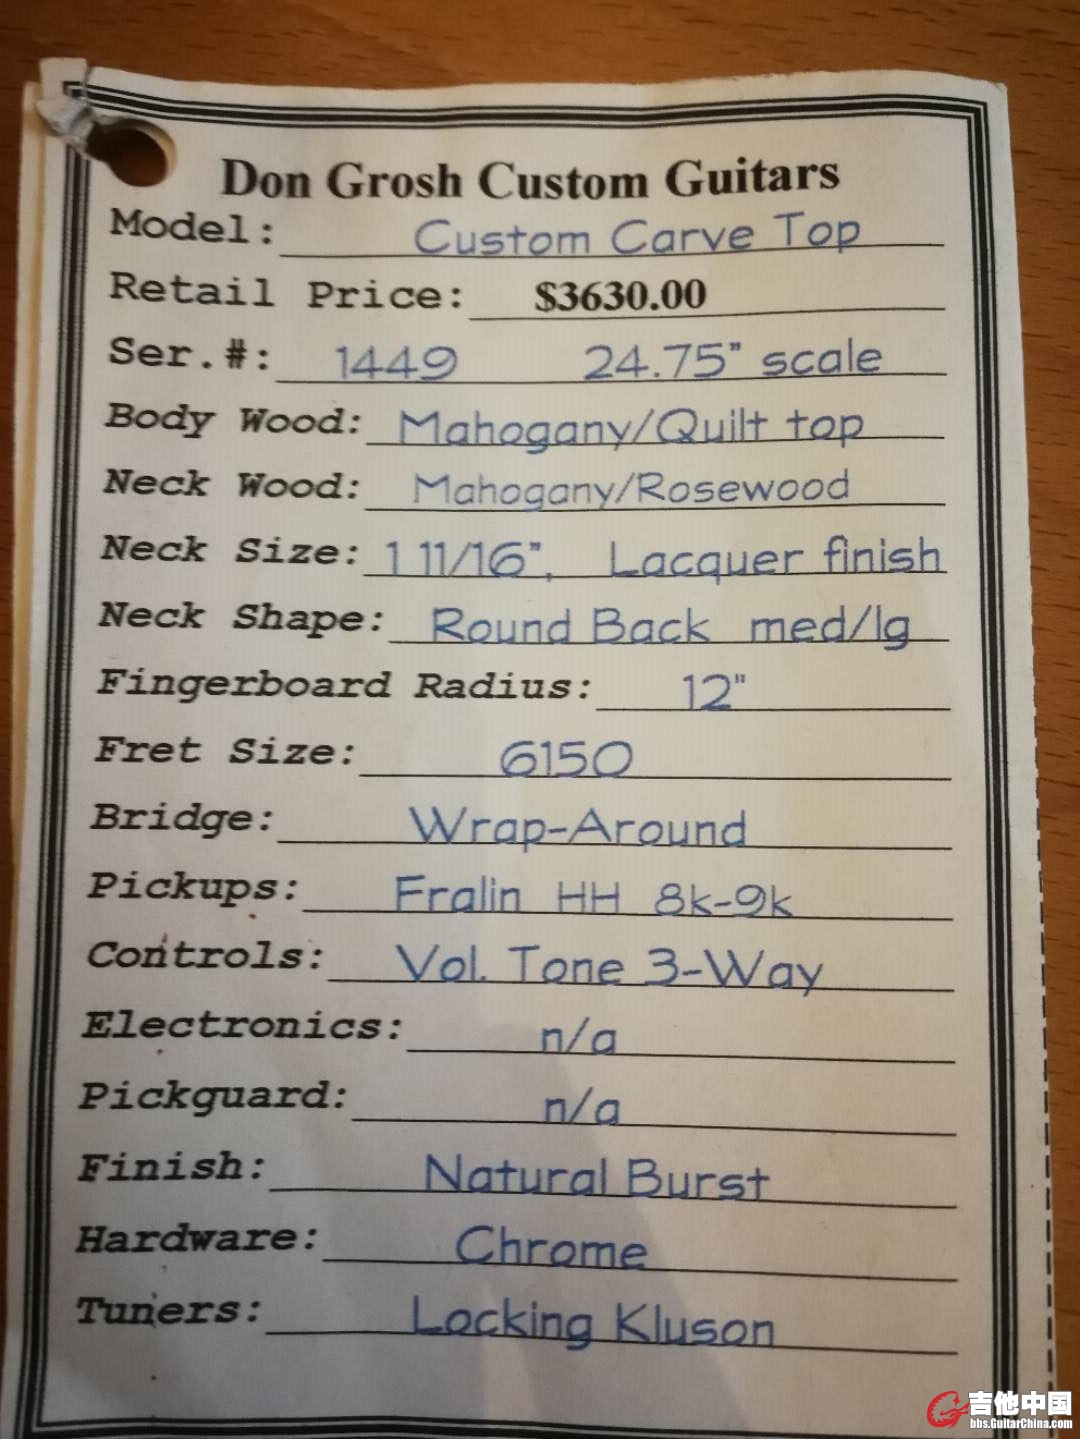 Don Grosh Custom Guitars
Model: Custom Carve Top
Retail Price: $3630.00
Ser.#: 1449 24.75" scale
Body Wood: Mahogany/Quilt top
Neck Wood: Mahogany/Rosewood
Neck Size: 1 11/16", Lacquer finish
Neck Shape: Round Back med/lg
Fingerboard Radius: 12"
Fret Size: 6150
Bridge: Wrap-Around
Pickups: Fralin HH 8k-9k
Controls: Vol. Tone 3-Way
Electronics: n/a
Pickguard: n/a
Finish: Natural Burst
Hardware: Chrome
Tuners: Locking Kluson
吉他中国
bbs.GuitarChina.com